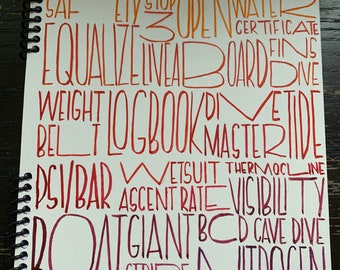 SAFETY STOP OPEN WATER
3 CERTIFICATE
EQUALIZE LIVEABOARD FINS
DIVE
WEIGHT LOGBOOK DIVE TIDE
BELT MASTER
PSI/BAR WETSUIT THERMOCLINE
ASCENT RATE VISIBILITY
BOAT GIANT BCD CAVE DIVE
NITROGEN